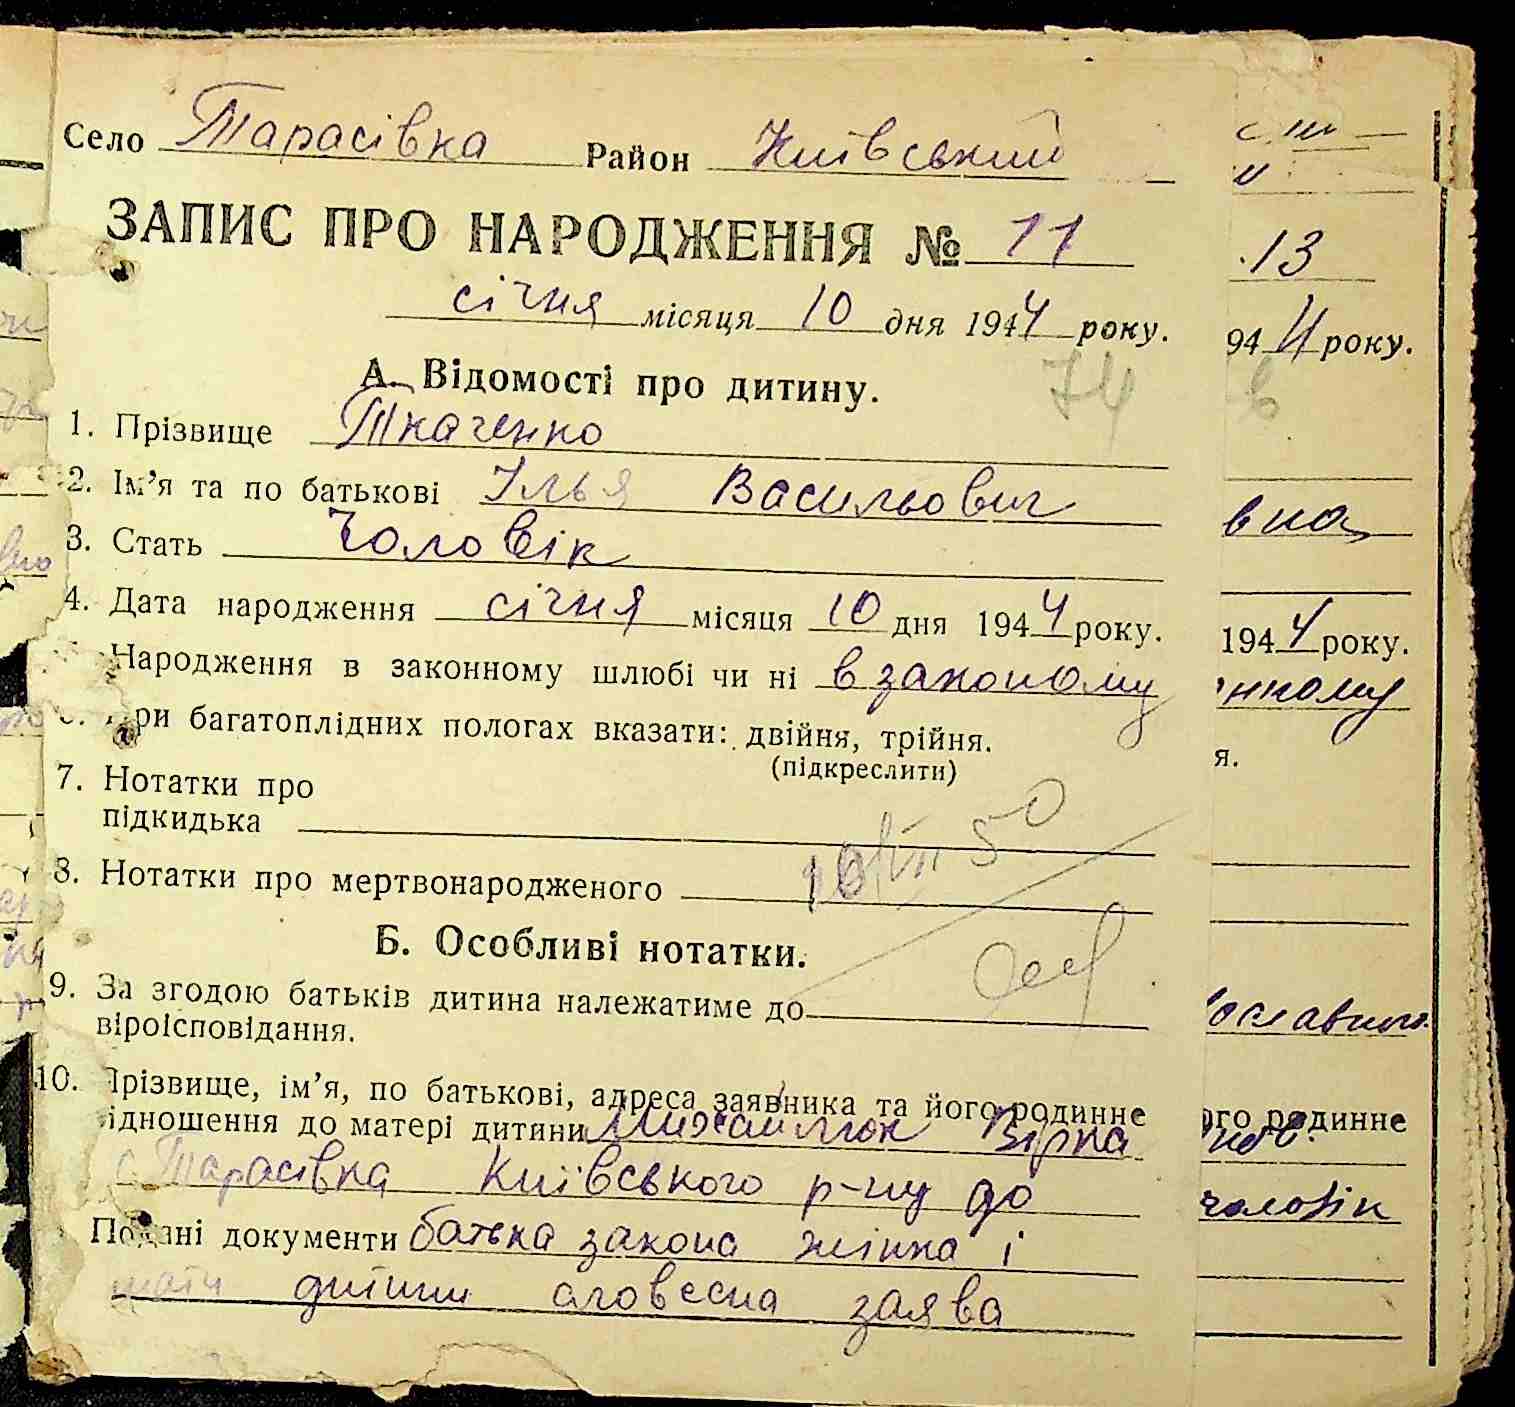 Село Тарасівка Район Київський
ЗАПИС ПРО НАРОДЖЕННЯ № 11
січня місяця 10 дня 1944 року.
А. Відомості про дитину.
74
1. Прізвище Ткаченко
2. Ім’я та по батькові Ілья Васильович
3. Стать Чоловік
4. Дата народження січня місяця 10 дня 1944 року.
Народження в законному шлюбі чи ні в законому
При багатоплідних пологах вказати: двійня, трійня.
(підкреслити)
7. Нотатки про
підкидька
8. Нотатки про мертвонародженого
Б. Особливі нотатки.
9. За згодою батьків дитина належатиме до
віроісповідання.
10. Прізвище, ім’я, по батькові, адреса заявника та його родинне
відношення до матері дитини Михайлюк Вірка
с. Тарасівка Київського р-ну до
Подані документи батька закона жінка і
мати дитини словесна заява
13
94 4 року.
вна
1944 року.
нному
я.
ославного
ого родинне
чоловік